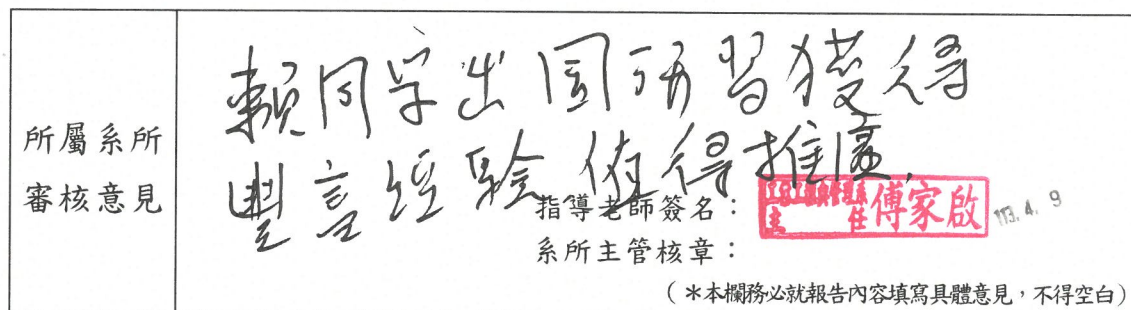 所屬系所
審核意見
賴同学出国研習獲得
豐富經驗值得推廣.
指導老師簽名：
工業工程與管理系
主任 傅家啟 113.4.9
系所主管核章：
（＊本欄務必就報告內容填寫具體意見，不得空白）